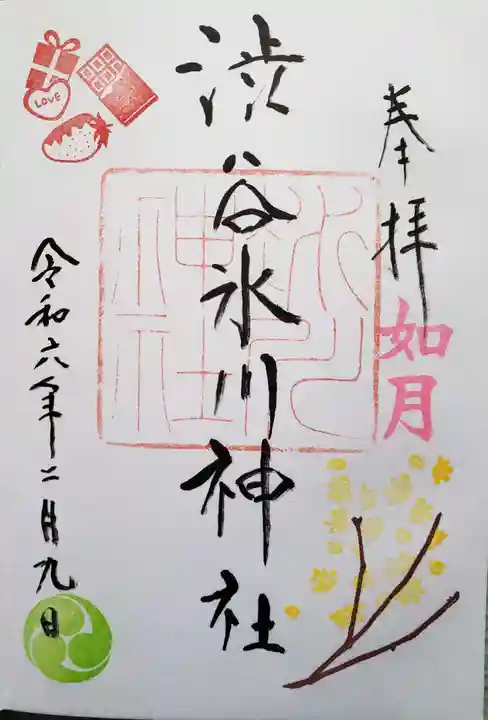 奉拝
如月
渋谷氷川神社
LOVE
令和六年二月九日